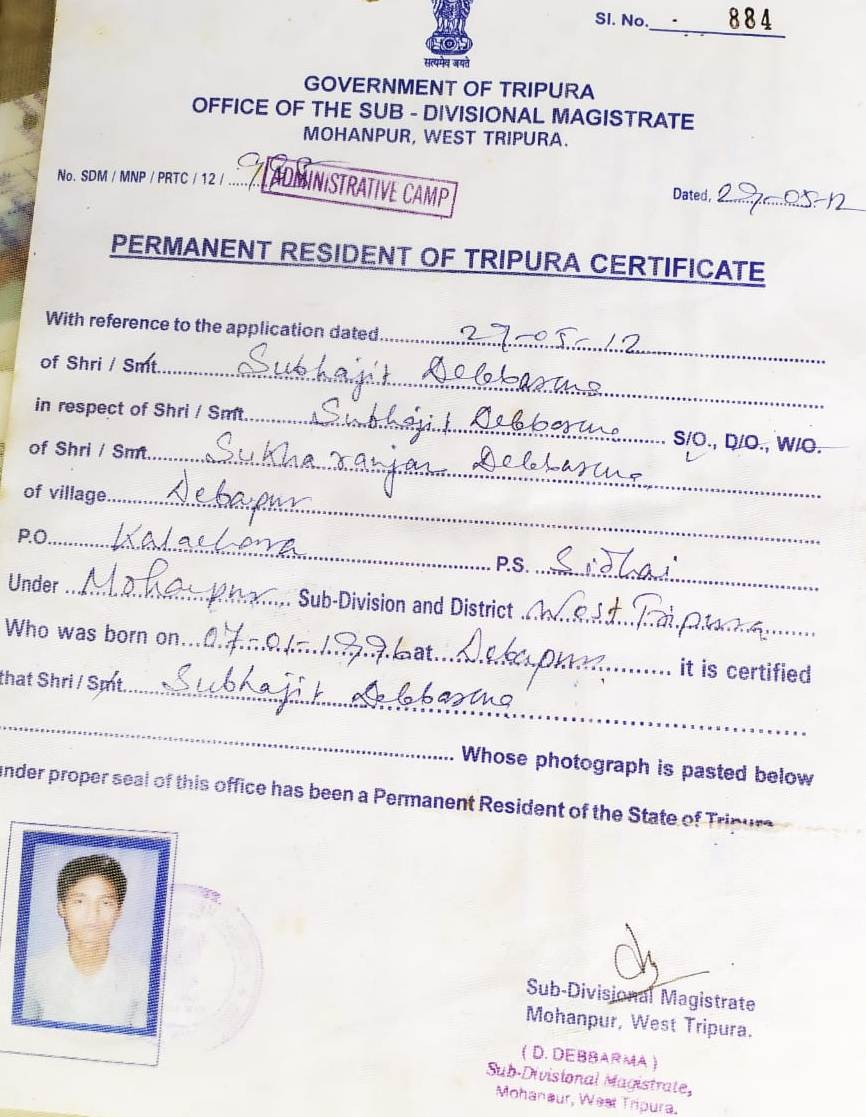 Sl. No. - 884
सत्यमेव जयते
GOVERNMENT OF TRIPURA
OFFICE OF THE SUB - DIVISIONAL MAGISTRATE
MOHANPUR, WEST TRIPURA.
No. SDM / MNP / PRTC / 12 / ......
ADMINISTRATIVE CAMP
Dated, 27-05-12
PERMANENT RESIDENT OF TRIPURA CERTIFICATE
With reference to the application dated 27-05-12
of Shri / Smt. Subhajit Debbarma
in respect of Shri / Smt. Subhajit Debbarma S/O., D/O., W/O.
of Shri / Smt. Sukha ranjan Debbarma
of village Debapur
P.O. Kalachora P.S. Sidhai
Under Mohanpur Sub-Division and District West Tripura
Who was born on 07-01-1996 at Debapur it is certified
that Shri / Smt. Subhajit Debbarma
Whose photograph is pasted below
under proper seal of this office has been a Permanent Resident of the State of Tripura
Sub-Divisional Magistrate
Mohanpur, West Tripura.
( D. DEBBARMA )
Sub-Divisional Magistrate,
Mohanpur, West Tripura.